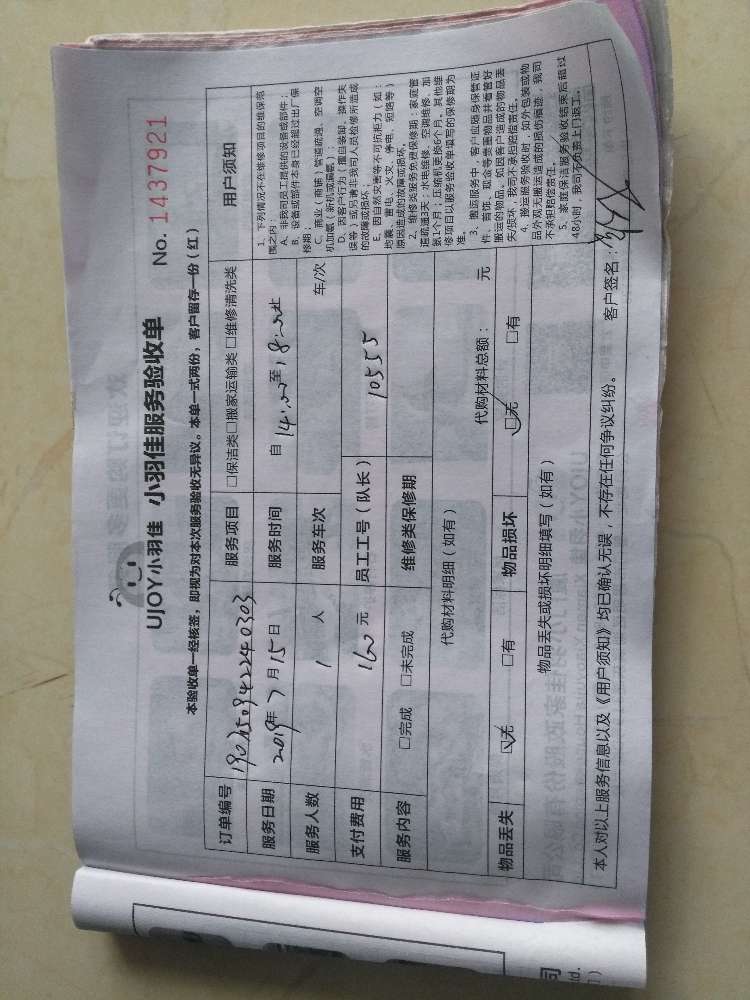 UJOY小羽佳 小羽佳服务验收单 No. 1437921
本验收单一经核签，即视为对本次服务验收无异议。本单一式两份，客户留存一份（红）
订单编号 服务项目 □保洁类□搬家运输类□维修清洗类 用户须知
服务日期 2019年7月15日 服务时间 自14:00至18:00止
服务人数 1 人 服务车次 车/次
支付费用 160 元 员工工号（队长） 10555
服务内容 □完成 □未完成 维修类保修期
代购材料明细（如有） 代购材料总额： 元
物品丢失 ☑无 □有 物品损坏 ☑无 □有
物品丢失或损坏明细填写（如有）
1、下列情况不在维修项目的维保范
围之内：
A、非我司员工提供的设备或部件；
B、设备或部件本身已经超过出厂保
修期；
C、商业（商铺）管道疏通、空调空
机加氨（新机或漏氨）；
D、因客户行为（擅自装卸、操作失
误等）或另请非我司人员检修所造成
的故障或损坏；
E、因自然灾害等不可抗拒力（如：
地震、雷电、火灾、停电、短路等）
原因造成的故障或损坏。
2、维修类服务免费保修期：家庭管
道疏通3天；水电维修、空调维修、加
氨1个月；压缩机更换6个月。其他维
修项目以服务验收单填写的保修期为
准。
3、搬运服务中，客户应随身保管证
件、首饰、现金等贵重物品并看管好
搬运的物品。如因客户造成的物品丢
失/损坏，我司不承担赔偿责任。
4、搬运服务验收时，如外包装或物
品外观无搬运造成的损伤痕迹，我司
不承担赔偿责任。
5、家庭保洁服务验收结束后超过
48小时，我司不负责上门返工。
本人对以上服务信息以及《用户须知》均已确认无误，不存在任何争议纠纷。 客户签名：